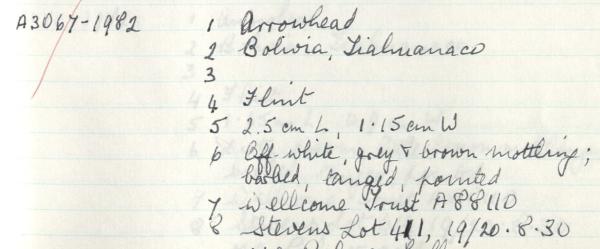 A3067-1982 1 Arrowhead
2 Bolivia, Tialmanaco
3
4 Flint
5 2.5 cm L, 1.15 cm W
6 Off white, grey & brown mottling;
barbed, tanged, pointed
7 Wellcome Trust A88110
8 Stevens Lot 411, 19/20.8.30